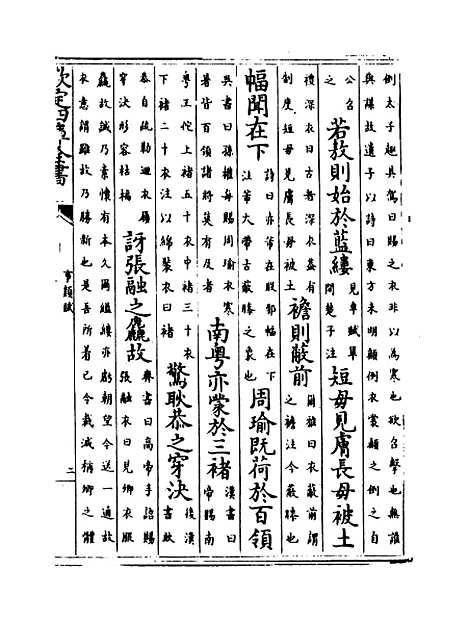 倒太子起具駕曰賜之衣非以為寒也欲召擊也無誰
與謀故遺子以詩曰東方未明顛倒衣裳顛之倒之自
公召
之
若敖則始於藍縷
見車賦單
閒楚子注
短毋見膚長毋被土
禮深衣曰古者深衣蓋有
制度短毋見膚長毋被土
襜則蔽前
爾雅曰衣蔽前謂
之襜注今蔽膝也
幅聞在下
詩曰赤芾在股邪幅在下
注芾大帶古蔽膝之象也
周瑜既荷於百領
吳書曰孫權每賜周瑜衣寒
暑皆百領諸將莫有及者
南粤亦蒙於三褚
漢書曰
帝賜南
粤王佗上褚五十衣中褚三十衣
下褚二十衣注以綿裝衣曰褚
驚耿恭之穿決
後漢
書耿
恭自疏勒迴衣屨
穿決形容枯槁
訝張融之麤故
齊書曰高帝手詔賜
張融衣曰見卿衣服
麤故誠乃素懷有本久周繼縷亦虧朝望今送一通故
衣意謂雖故乃勝新也是吾所着已令裁減稱卿之體
欽定四庫全書
事類賦
二